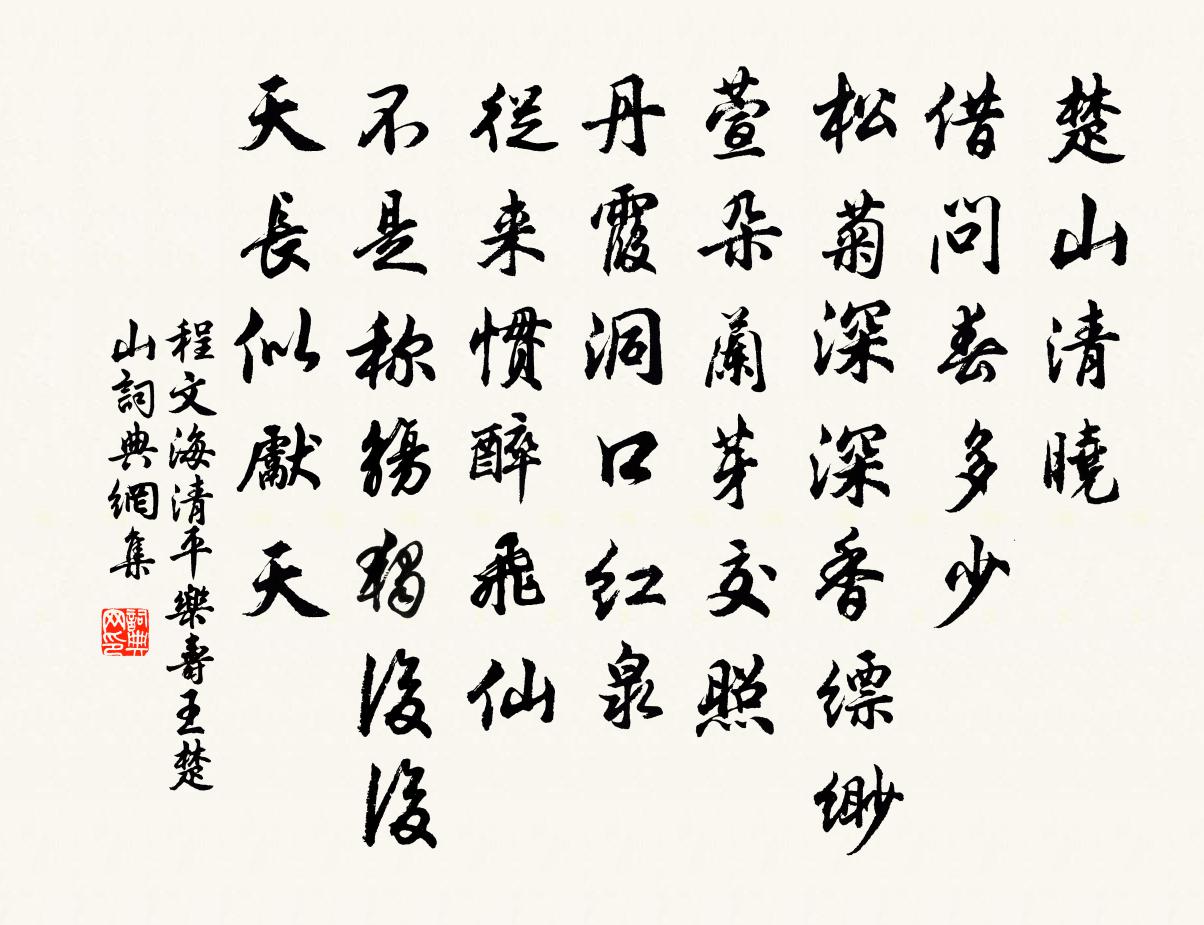 楚山清曉
借問春多少
松菊深深香縹緲
萱朵蘭芽交照
丹霞洞口紅泉
從来慣醉飛仙
不是称觴獨後後
天長似獻天
程文海清平樂壽王楚
山詞典網集
詞典网印